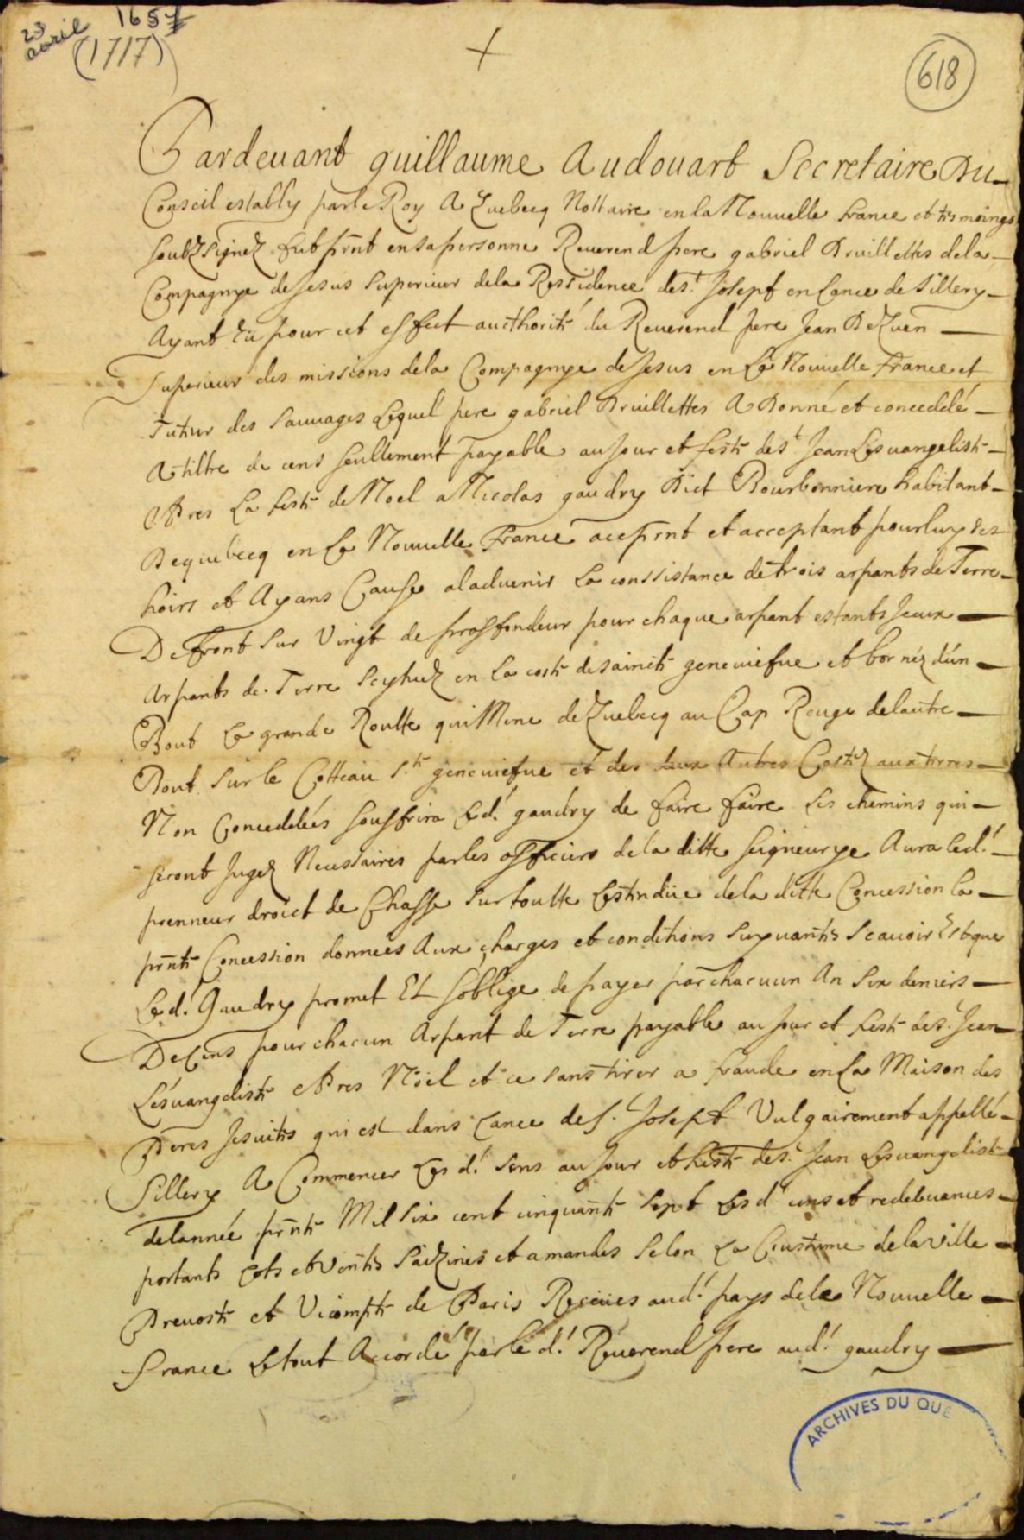 23 avril 1657
(1717)
618
Pardeuant guillaume Audouart Secretaire Du
Conseil estably par le Roy A Quebecq Nottaire en la Nouuelle france et tesmoings
soubzsignez fut prnt en sa personne Reuerend pere gabriel Druillettes de la
Compagnye de Jesus superieur dela Ressidence de st Joseph en Lance de sillery
Ayant Eü pour cet effect authorité du Reuerend pere Jean DeQuen
superieur des missions dela Compagnye de Jesus en La Nouuelle France et
Tuteur des sauuages Lequel pere gabriel Druillettes A Donné et conceddé
A tiltre de cens seullement payable au Jour et feste de st Jean Lesuangeliste
Apres La feste de Noel a Nicolas gaudry Dict Bourbonniere habitant
De quebecq en La Nouuelle France aceprnt et acceptant pour luy ses
hoirs et Ayans Cause aladuenir La conssistance de trois arpants de Terre
De front sur Vingt de proffondeur pour chaque arpent estants
Arpants de Terre scytuez en la coste de saincte geneuiefue et bornéz d'un
Bout La grande Routte qui Mene de Quebecq au Cap Rouge de lautre
Bout sur le Cotteau ste geneuiefue et des deux Autres Costez aux terres
Non Conceddées souffrira Led. gaudry de faire faire Les chemins qui
seront Jugez Necessaires par les officiers de la ditte seigneurye Aura led.
prenneur droict de Chasse sur toutte Lestendüe dela ditte Concession la
prnte Concession donnees Aux charges et conditions suyuantes scauoir Est que
Led. Gaudry promet Et soblige de payer par chacun An six deniers
De Cens pour chacun Arpant de Terre payable au Jour et feste de st Jean
Lesuangeliste Apres Noel et ce sans tirer a fraude en La Maison des
Peres Jesuites qui est dans Lance de st. Joseph Vulgairement appellé
Sillery A Commencer Lesd. sens au Jour et feste de st. Jean Lesuangeliste
de lannée prnte Mil six cent cinquante sept Lesd cens et redebuances
portants Lots et Ventes saizines et amandes selon La Coustume de la Ville
Preuosté et Vicompté de Paris Receües aud. pays de la Nouuelle
france Le tout Accordé par le d. Reuerend pere aud. gaudry
ARCHIVES DU QUÉ